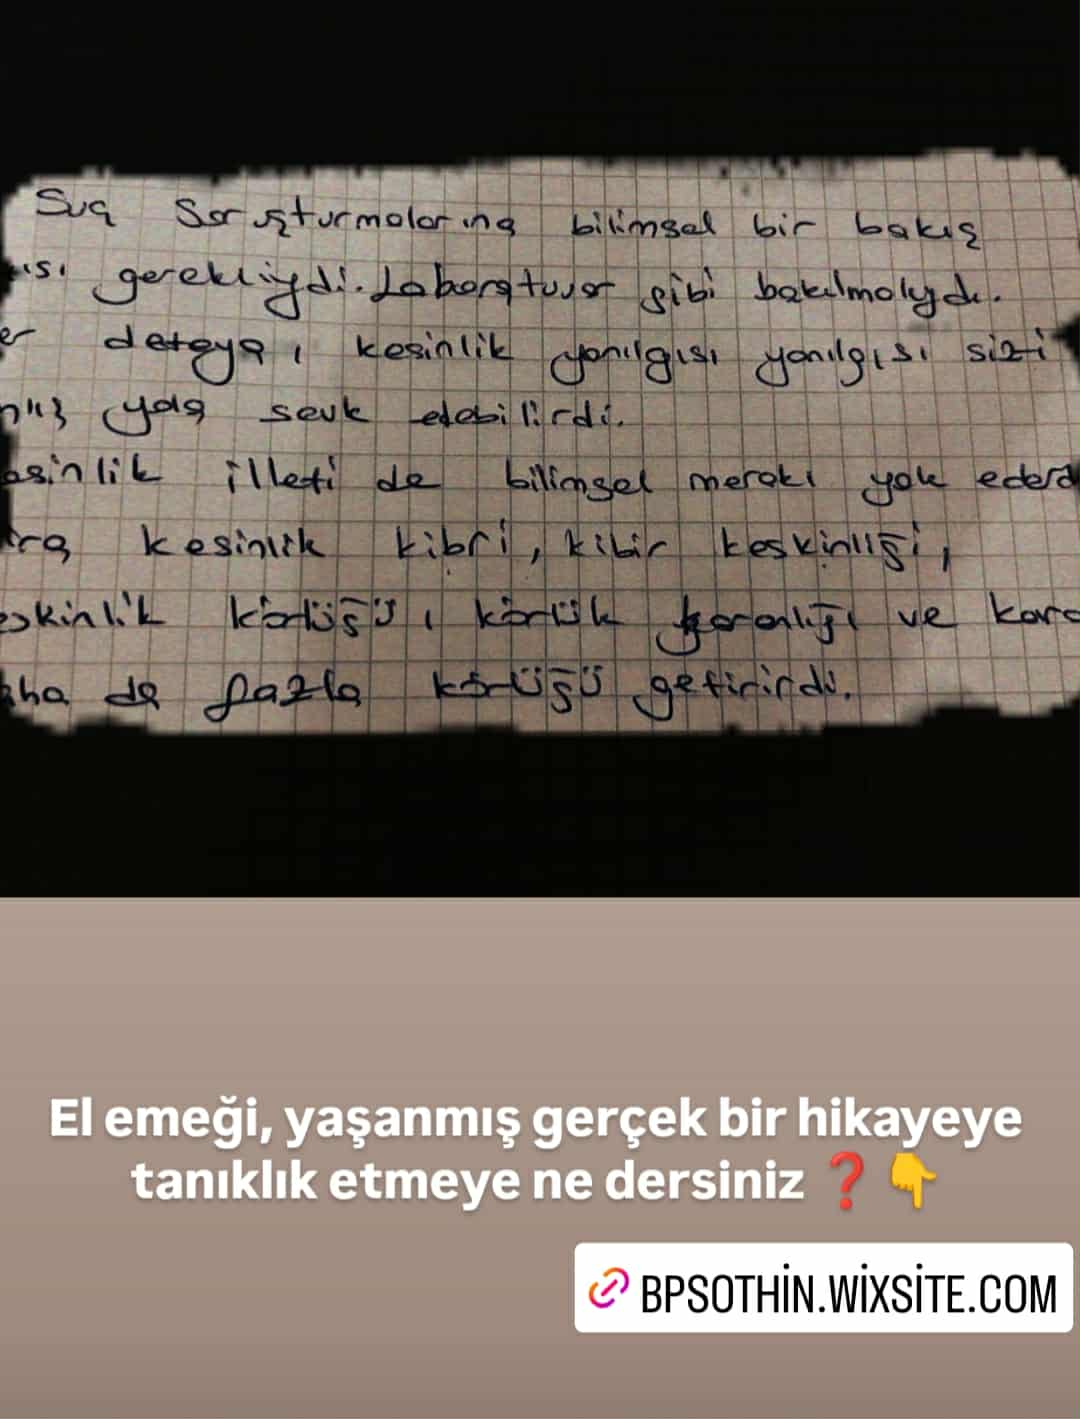 Suç Soruşturmalarına bilimsel bir bakış
ısı gerekliydi. Laboratuvar gibi bakılmalıydı.
er detaya, kesinlik yanılgısı yanılgısı sizi
yola sevk edebilirdi.
esinlik illeti de bilimsel merakı yok ederd
ra kesinlik kibri, kibir keskinliği,
eskinlik körlüğü, körlük karanlığı ve kara
aha da fazla körlüğü getirirdi.
El emeği, yaşanmış gerçek bir hikayeye
tanıklık etmeye ne dersiniz ❓👇
BPSOTHIN.WİXSİTE.COM